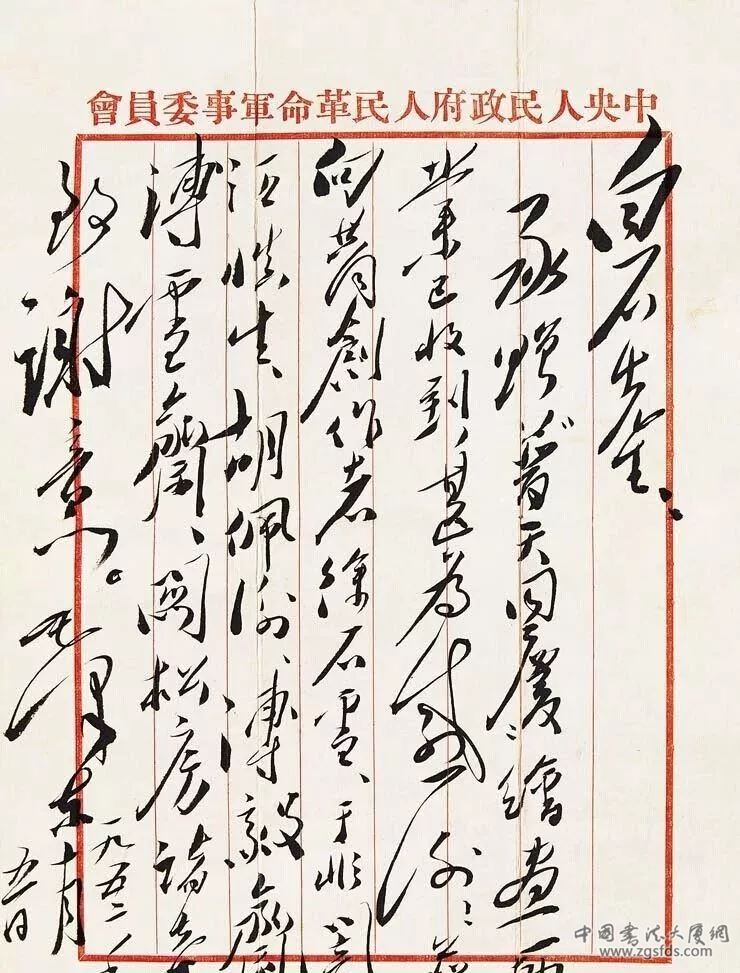 中央人民政府人民革命軍事委員會
白石先生：
承贈普天同慶繪畫一
業已收到，甚為感謝！並
向共同創作者徐石雪、于非闇
汪慎生、胡佩衡、溥毅齋
溥雪齋、關松房諸先
致謝意。毛澤東
一九五二年
十月
五日
中国书法大厦网
www.zgsfds.com